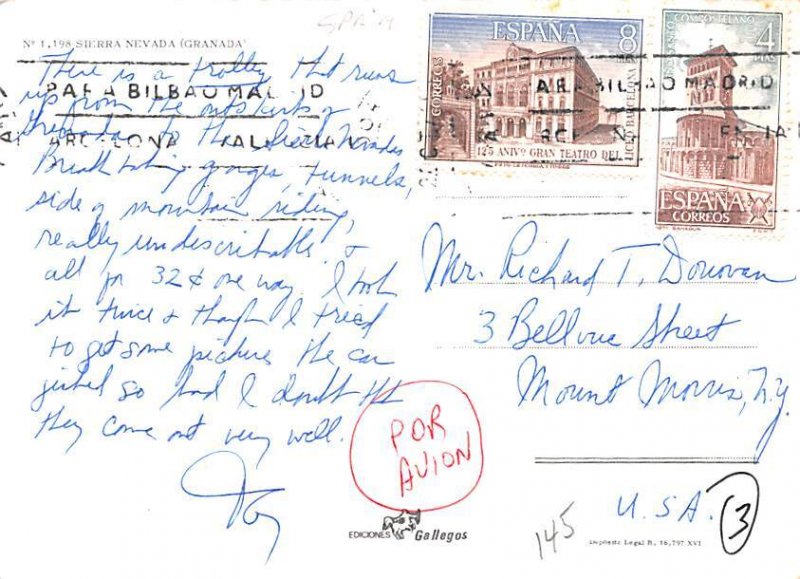 SPAIN
Nº 1.198 SIERRA NEVADA (GRANADA)
There is a trolley that runs
up from the outskirts of
Grenada to the Sierra Nevadas
Breathtaking gorges, tunnels,
side of mountain riding,
really undescribable &
all for 32¢ one way. I took
it twice & though I tried
to get some pictures the car
jostled so bad I doubt tht
they come out very well.
PARA BILBAO MADRID
BARCELONA VALENCIA
ESPAÑA
8
PTAS
CORREOS
125 ANIVº GRAN TEATRO DEL
LICEO BARCELONA
COMPOSTELANO
4
PTAS
ESPAÑA
CORREOS
PARA BILBAO MADRID
Mr. Richard T. Donovan
3 Bellvue Street
Mount Morris, N.Y.
U.S.A.
3
POR
AVION
145
EDICIONES Gallegos
Depósito Legal B. 16.797 XVI